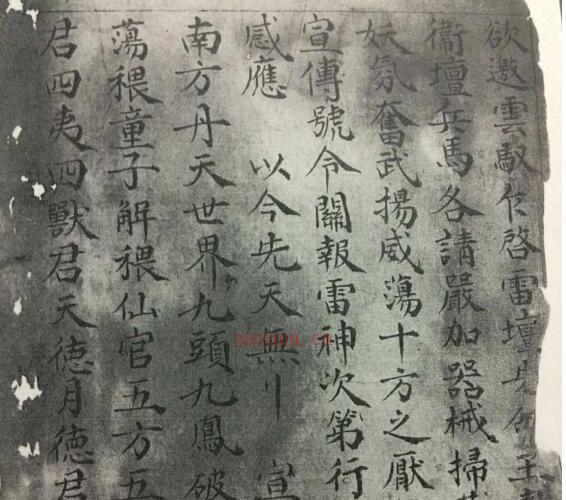 欲邀雲馭啓雷壇
衞壇兵馬各請嚴加器械掃
妖氛奮武揚威蕩十方之厭
宣傳號令關報雷神次第行
感應 以今先天無 宣
南方丹天世界九頭九鳳破
蕩穢童子解穢仙官五方五
君四夷四獸君天德月德君